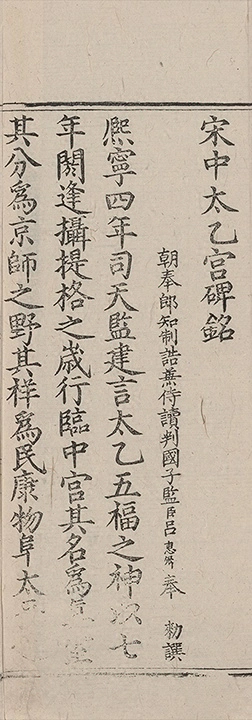 宋中太乙宮碑銘
朝奉郎知制誥兼侍讀判國子監臣呂惠卿奉 勑譔
熈寧四年司天監建言太乙五福之神以七
年閼逢攝提格之歳行臨中宫其名爲真室
其分爲京師之野其祥爲民康物阜太